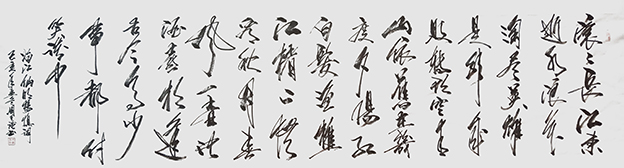 滚滚长江东
逝水浪花
淘尽英雄
是非成
败转头空青
山依旧在几
度夕阳红
白发渔樵
江渚上惯
看秋月春
风一壶浊
酒喜相逢
古今多少
事都付
笑谈中
临江仙杨慎词